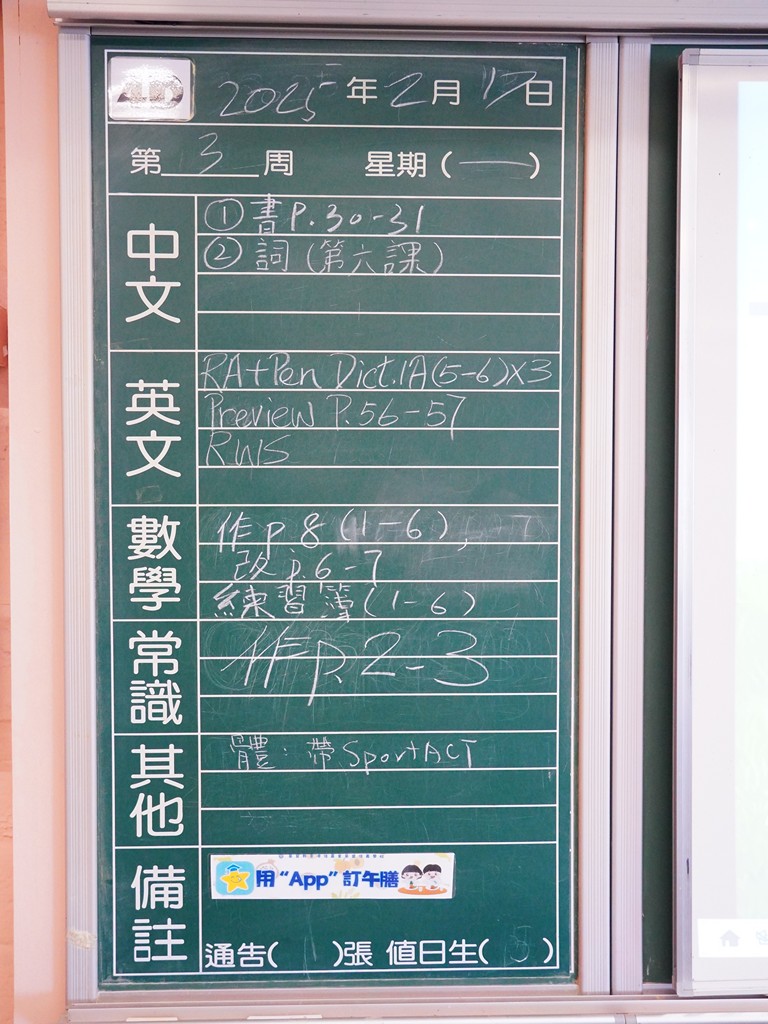 2025年2月17日
第3周 星期(一)
中文
①書P.30-31
②詞(第六課)
英文
RA+Pen Dict.1A(5-6)X3
Preview P.56-57
RWS
數學
作p.8(1-6),
改p.6-7
練習簿(1-6)
常識
作p.2-3
其他
體:帶SportACT
備註
用“App”訂午膳
通告( )張 值日生(5)